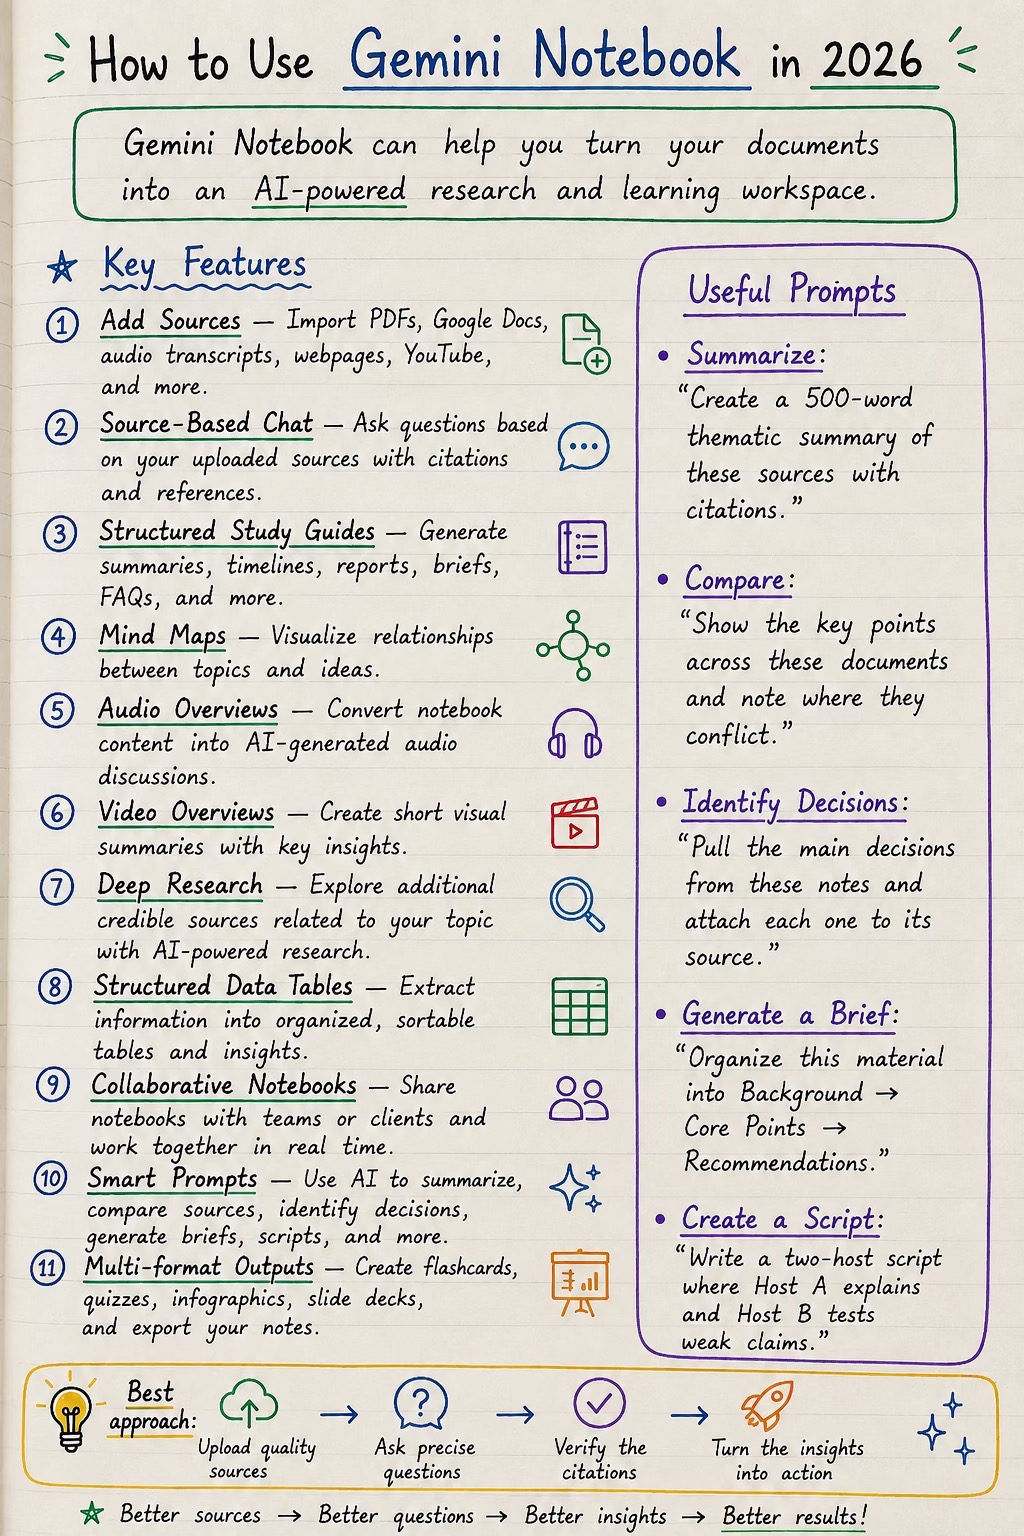 How to Use Gemini Notebook in 2026
Gemini Notebook can help you turn your documents
into an AI-powered research and learning workspace.
Key Features
1 Add Sources — Import PDFs, Google Docs,
audio transcripts, webpages, YouTube,
and more.
2 Source-Based Chat — Ask questions based
on your uploaded sources with citations
and references.
3 Structured Study Guides — Generate
summaries, timelines, reports, briefs,
FAQs, and more.
4 Mind Maps — Visualize relationships
between topics and ideas.
5 Audio Overviews — Convert notebook
content into AI-generated audio
discussions.
6 Video Overviews — Create short visual
summaries with key insights.
7 Deep Research — Explore additional
credible sources related to your topic
with AI-powered research.
8 Structured Data Tables — Extract
information into organized, sortable
tables and insights.
9 Collaborative Notebooks — Share
notebooks with teams or clients and
work together in real time.
10 Smart Prompts — Use AI to summarize,
compare sources, identify decisions,
generate briefs, scripts, and more.
11 Multi-format Outputs — Create flashcards,
quizzes, infographics, slide decks,
and export your notes.
Useful Prompts
• Summarize:
“Create a 500-word
thematic summary of
these sources with
citations.”
• Compare:
“Show the key points
across these documents
and note where they
conflict.”
• Identify Decisions:
“Pull the main decisions
from these notes and
attach each one to its
source.”
• Generate a Brief:
“Organize this material
into Background →
Core Points →
Recommendations.”
• Create a Script:
“Write a two-host script
where Host A explains
and Host B tests
weak claims.”
Best
approach:
Upload quality
sources
→
Ask precise
questions
→
Verify the
citations
→
Turn the insights
into action
Better sources → Better questions → Better insights → Better results!